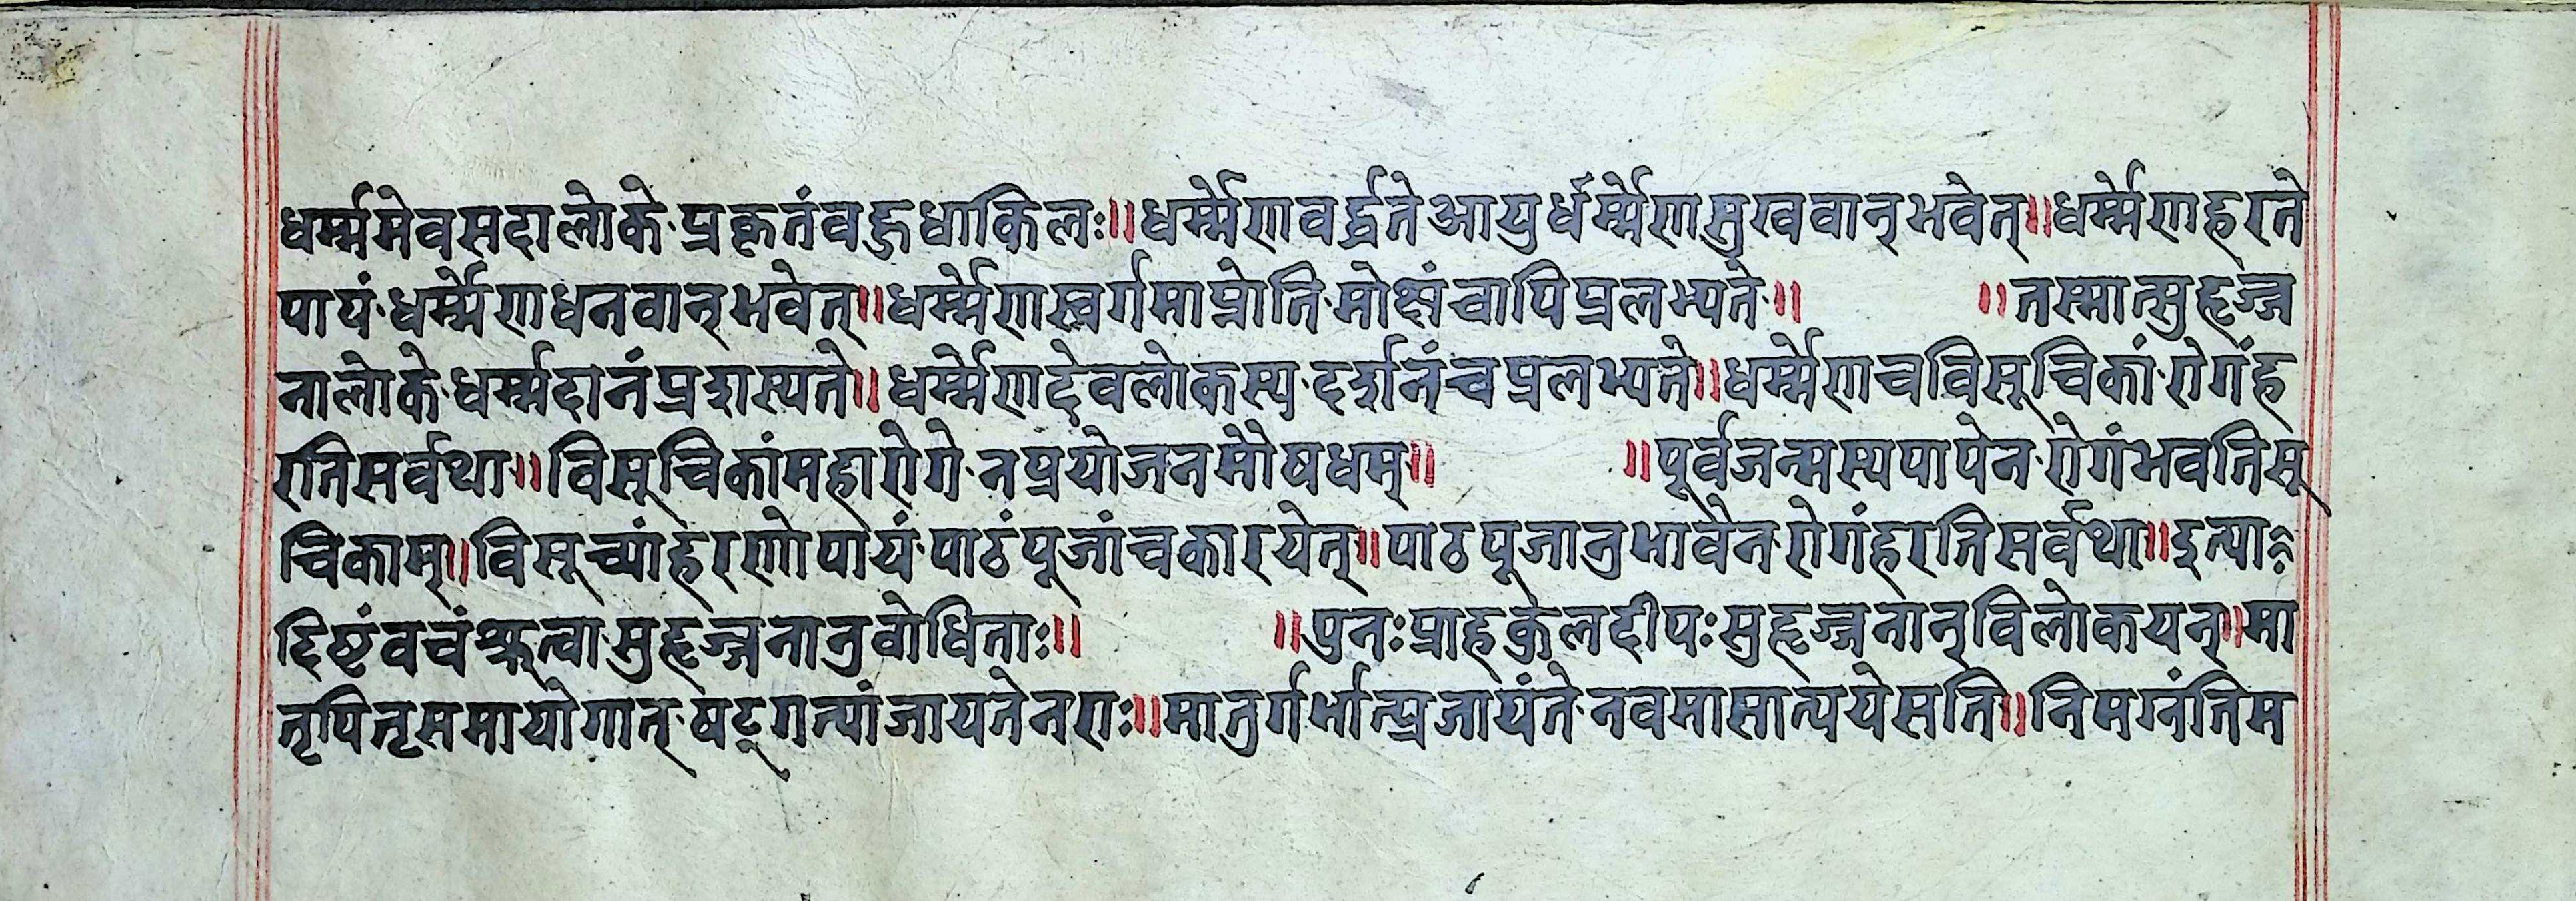 धर्म्ममेवसदालोके·प्रकृतंवद्धुधाकिलः॥धर्म्मेणवर्द्धतेआयुर्धर्म्मेणसुखवान्भवेत्॥धर्म्मेणहरते
पापं·धर्म्मेणधनवान्भवेत्॥धर्म्मेणस्वर्गमाप्नोति·मोक्षंचापिप्रलभ्यते·॥ ॥तस्मात्सुहृज्ज
नालोके·धर्म्मदानंप्रशस्यते॥धर्म्मेणदेवलोकस्य·दर्शनंचप्रलभ्यते॥धर्म्मेणचविसूचिकां·रोगंह
रतिसर्वथा॥विसूचिकांमहारोगे·नप्रयोजनमौषधम्॥ ॥पूर्वजन्मस्यपापेन·रोगंभवतिसू
चिकाम्॥विसूच्यांहरणोपायं·पाठंपूजांचकारयेत्॥पाठपूजानुभावेन·रोगंहरतिसर्वथा॥इत्या
दिष्टंवचंश्रुत्वा·सुहृज्जनानुवोधिताः॥ ॥पुनःप्राहकुलदीपःसुहृज्जनान्विलोकयन्॥मा
तृपितृसमायोगात्·षट्गत्यांजायतेनराः॥मातुर्गर्भात्प्रजायंते·नवमासात्ययेसति॥निमग्नंतिम